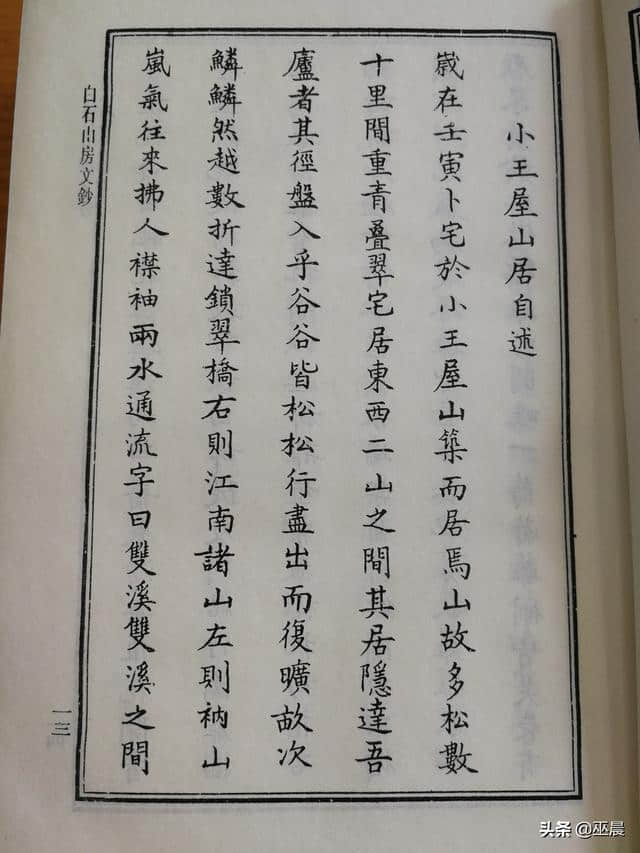 小王屋山居自述
歲在壬寅卜宅於小王屋山築而居焉山故多松數
十里間重青疊翠宅居東西二山之間其居隱達吾
廬者其徑盤入乎谷谷皆松松行盡出而復曠故次
鱗鱗然越數折達鎖翠橋右則江南諸山左則衲山
嵐氣往來拂人襟袖兩水通流字曰雙溪雙溪之間
白石山房文鈔
一三
头条 @巫晨